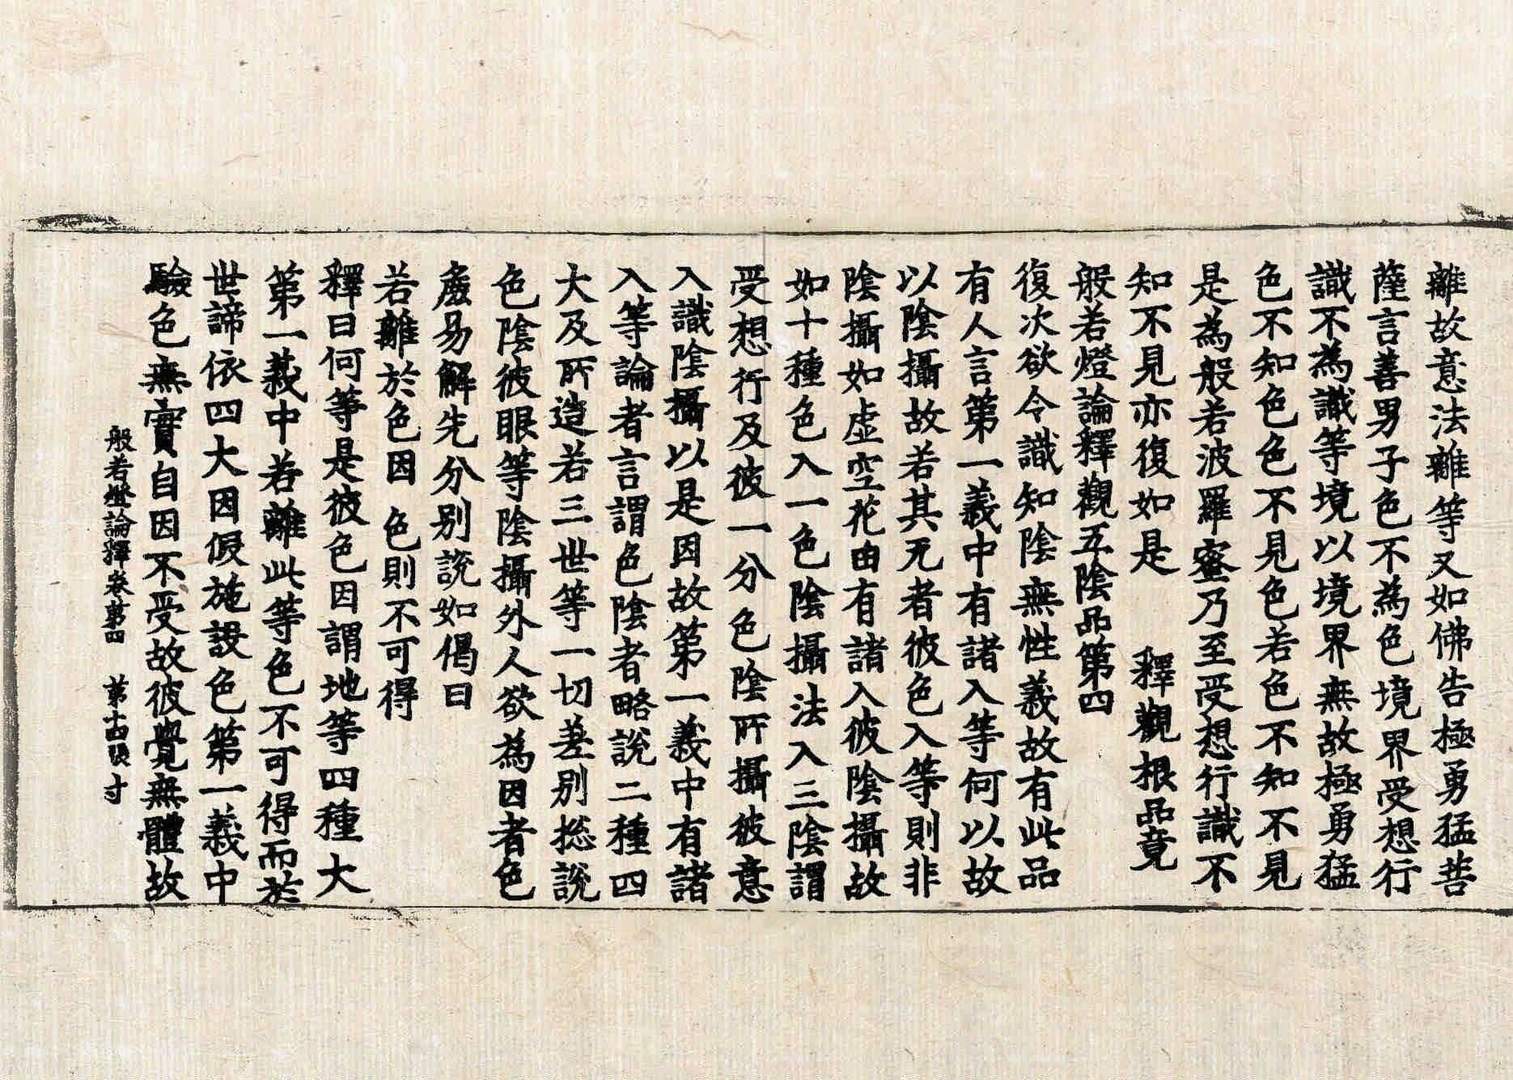 離故意法離等又如佛告極勇猛菩
薩言善男子色不為色境界受想行
識不為識等境以境界無故極勇猛
色不知色色不見色若色不知不見
是為般若波羅蜜乃至受想行識不
知不見亦復如是　釋觀根品竟
般若燈論釋觀五陰品第四
復次欲令識知陰無性義故有此品
有人言第一義中有諸入等何以故
以陰攝故若其无者彼色入等則非
陰攝如虛空花由有諸入彼陰攝故
如十種色入一色陰攝法入三陰謂
受想行及彼一分色陰所攝彼意
入識陰攝以是因故第一義中有諸
入等論者言謂色陰者略說二種四
大及所造若三世等一切差別揔說
色陰彼眼等陰攝外人欲為因者色
處易解先分別說如偈曰
若離於色因　色則不可得
釋曰何等是彼色因謂地等四種大
第一義中若離此等色不可得而於
世諦依四大因假施設色第一義中
驗色無實自因不受故彼覺無體故
般若燈論釋卷第四　第十四張　寸